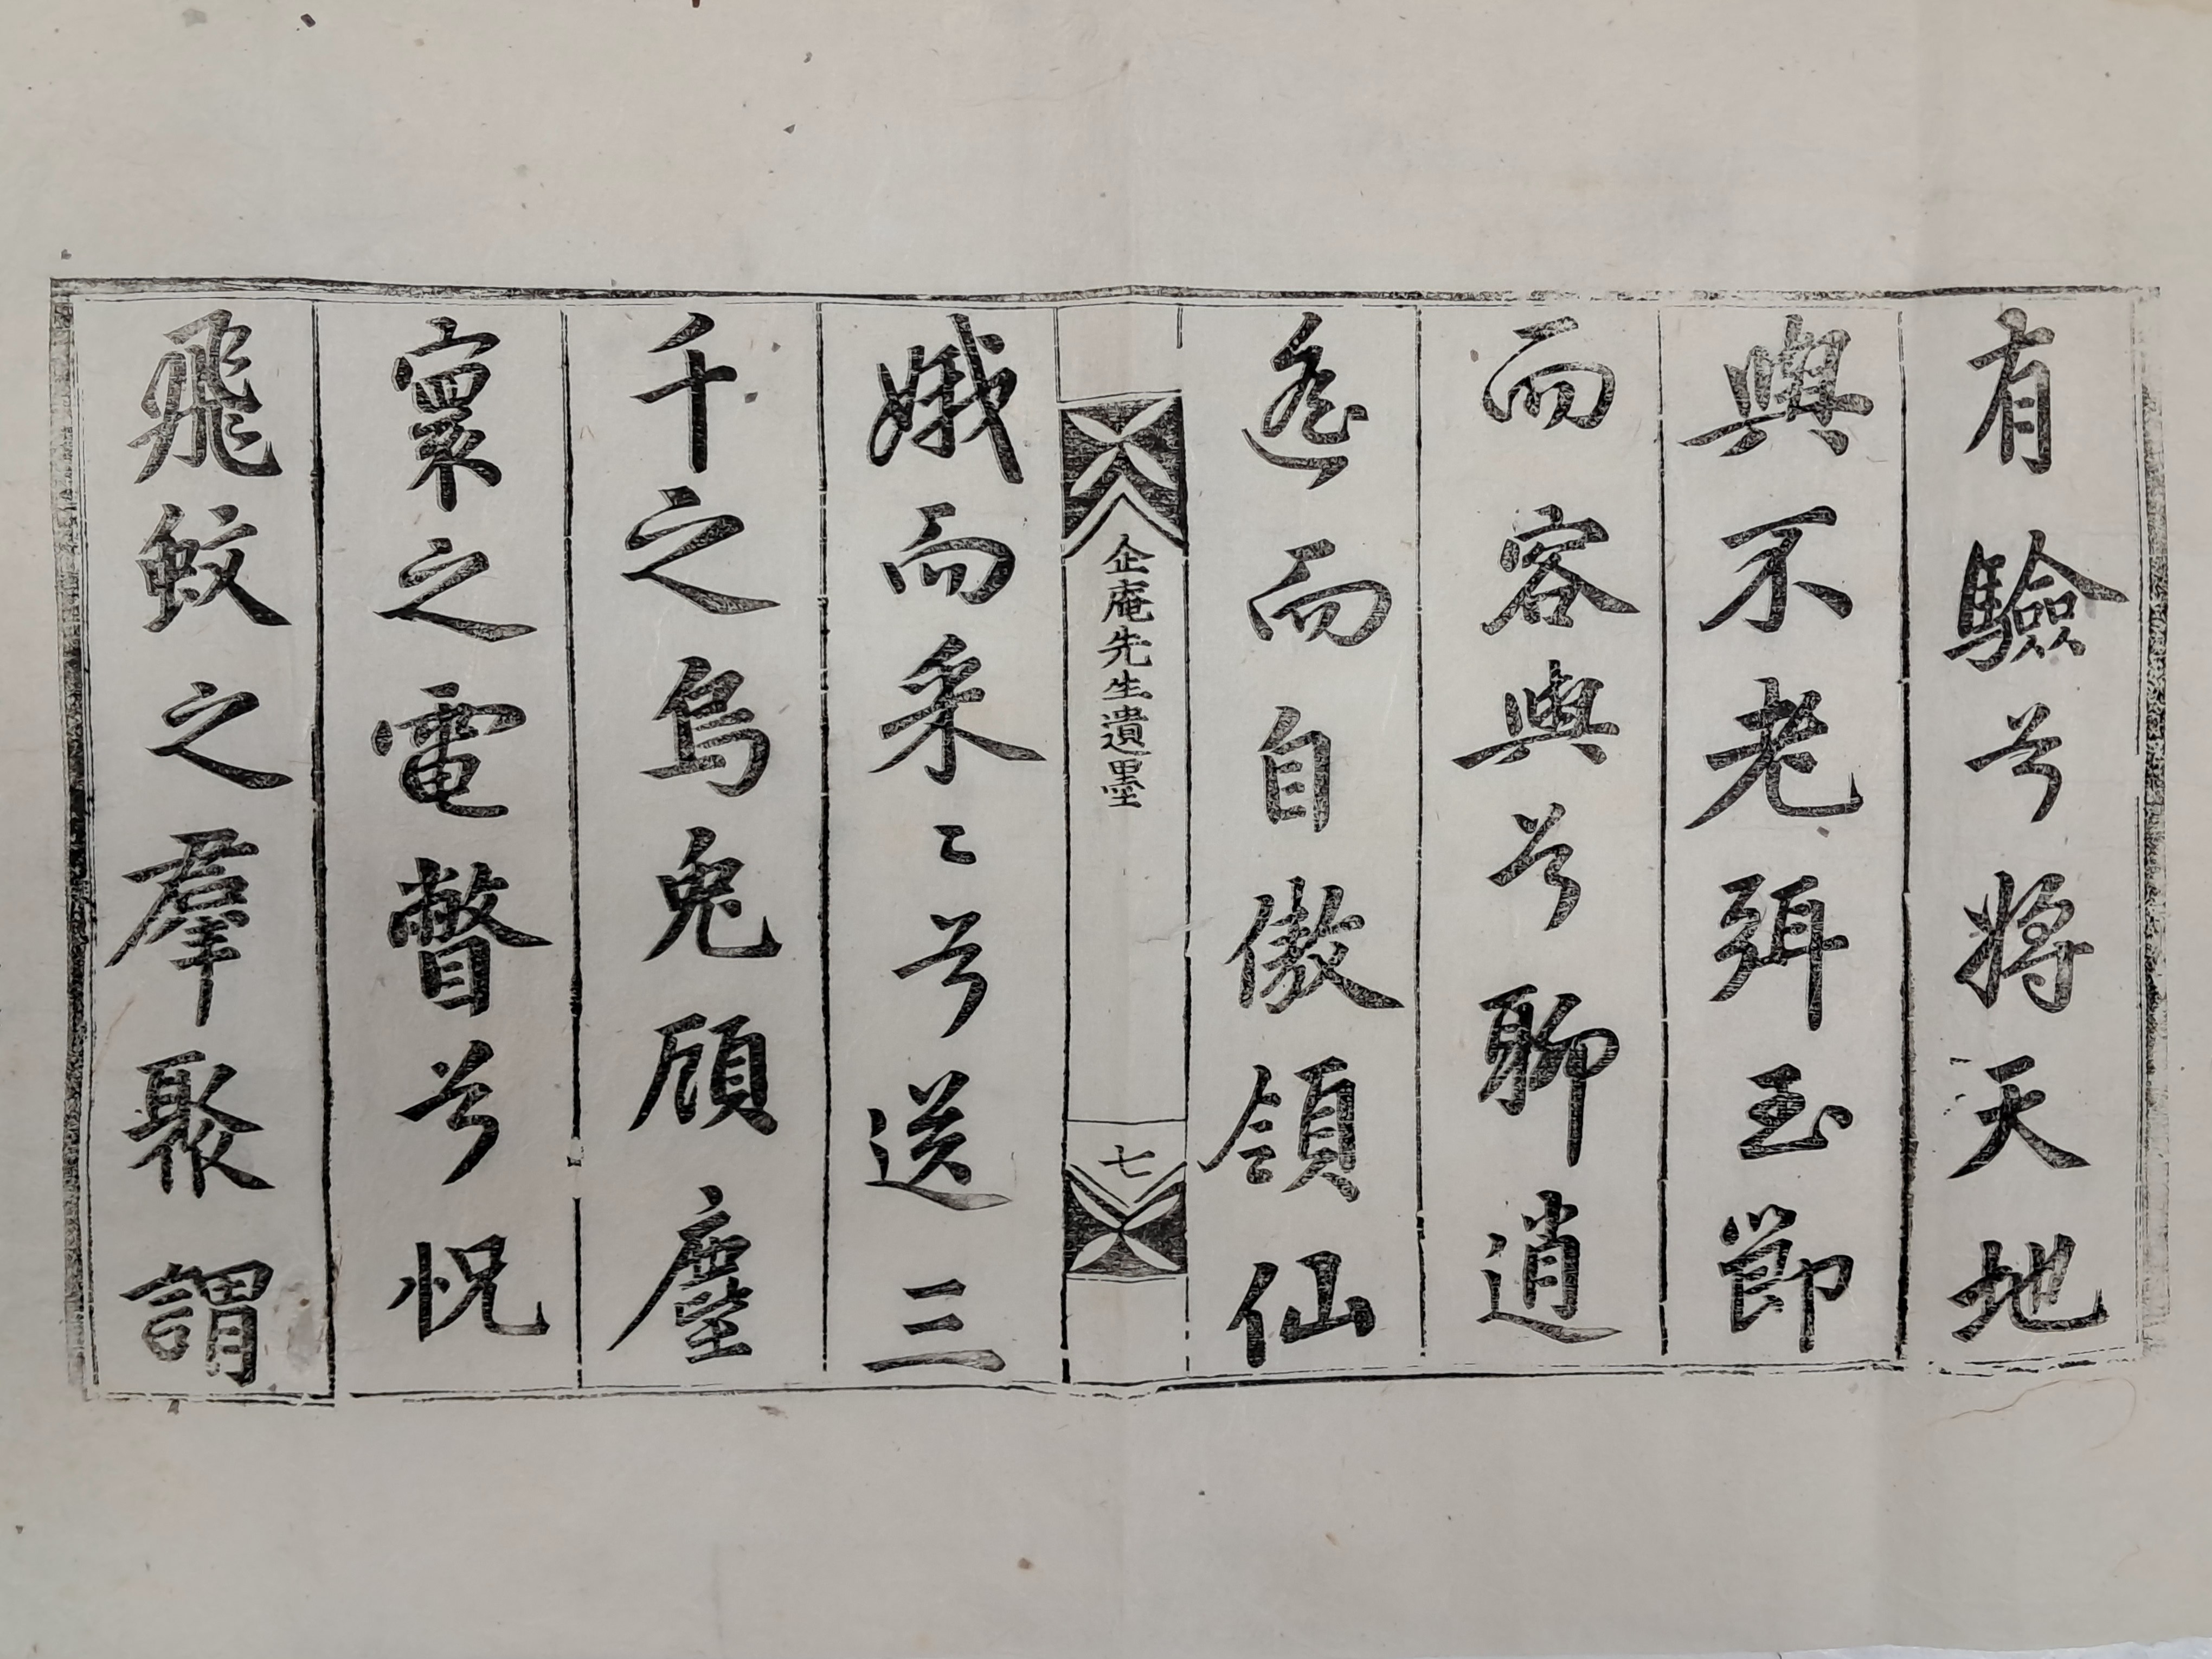 有驗兮將天地
與不老弭玉節
而容與兮聊逍
遙而自傲領仙
企庵先生遺墨
七
娥而采〻兮送三
千之烏兔顧塵
寰之電瞥兮怳
飛蚊之羣聚謂